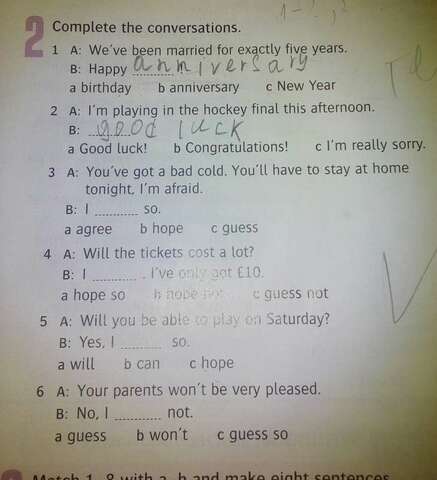 2 Complete the conversations.
1 A: We've been married for exactly five years.
B: Happy anniversary
a birthday b anniversary c New Year
2 A: I'm playing in the hockey final this afternoon.
B: good luck
a Good luck! b Congratulations! c I'm really sorry.
3 A: You've got a bad cold. You'll have to stay at home
tonight, I'm afraid.
B: I ............ so.
a agree b hope c guess
4 A: Will the tickets cost a lot?
B: I ............ . I've only got £10.
a hope so b hope not c guess not
5 A: Will you be able to play on Saturday?
B: Yes, I ............ so.
a will b can c hope
6 A: Your parents won't be very pleased.
B: No, I ............ not.
a guess b won't c guess so
Match 1 8 with a h and make eight sentences